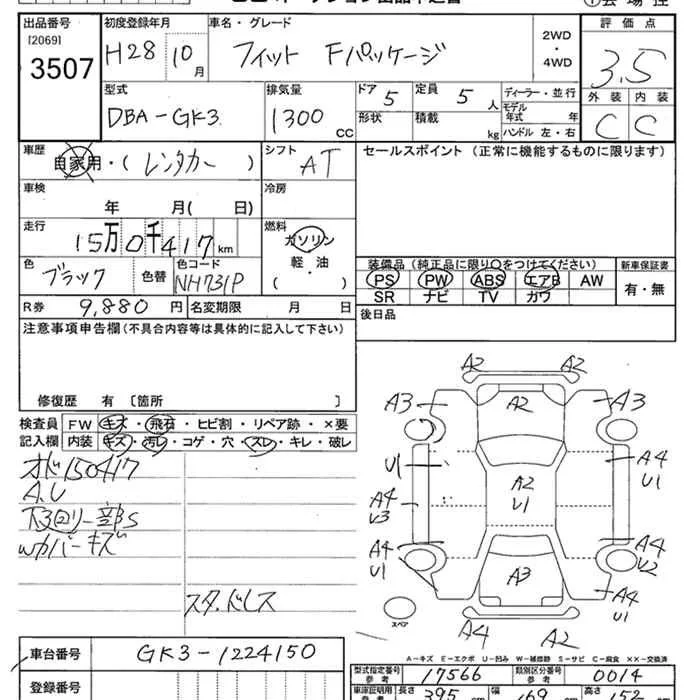 出品番号
[2069]
3507
初度登録年月
H28 10 月
車名・グレード
フィット Fパッケージ
2WD
・
4WD
評価点
3.5
型式
DBA-GK3
排気量
1300 CC
ドア 5
形状
定員 5 人
積載 kg
ディーラー・並行
モデル年式 年
ハンドル 左・右
外装 内装
C C
車歴
自家用・( レンタカー )
シフト
AT
セールスポイント (正常に機能するものに限ります)
車検
年 月( 日)
冷房
走行
15万0千417 km
燃料
ガソリン
軽・油
( )
色
ブラック
色替
色コード
NH731P
装備品 (純正品に限り○をつけてください)
PS PW ABS エアB AW
SR ナビ TV カワ
新車保証書
有・無
R券 9,880 円
名変期限 月 日
後日品
注意事項申告欄 (不具合内容等は具体的に記入して下さい)
修復歴 有 〔箇所 〕
検査員
記入欄
FW キズ・飛石・ヒビ割・リペア跡・×要
内装 キズ・汚レ・コゲ・穴・スレ・キレ・破レ
オド150417
A.U
下回り一部S
Wカバーキズ
スタ.ドレス
A2 A2
A3 A2 A3
U1 A4
U1
A2
U1
A4
U3
A4
U1
A4
U2
A3
A4
U1
A4 A2
スペア
A-キズ E-エクボ U-凹み W-補修跡 S-サビ C-腐食 XX-交換済
車台番号 GK3-1224150
登録番号
型式指定番号
参考
17566
類別区分番号
参考
0014
車庫証明用
長さ 395 cm 幅 169 cm 高さ 152 cm